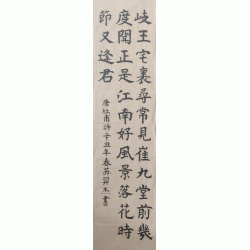 岐王宅裏尋常見崔九堂前幾
度聞正是江南好風景落花時
節又逢君
唐杜甫詩辛丑年春苏杰書